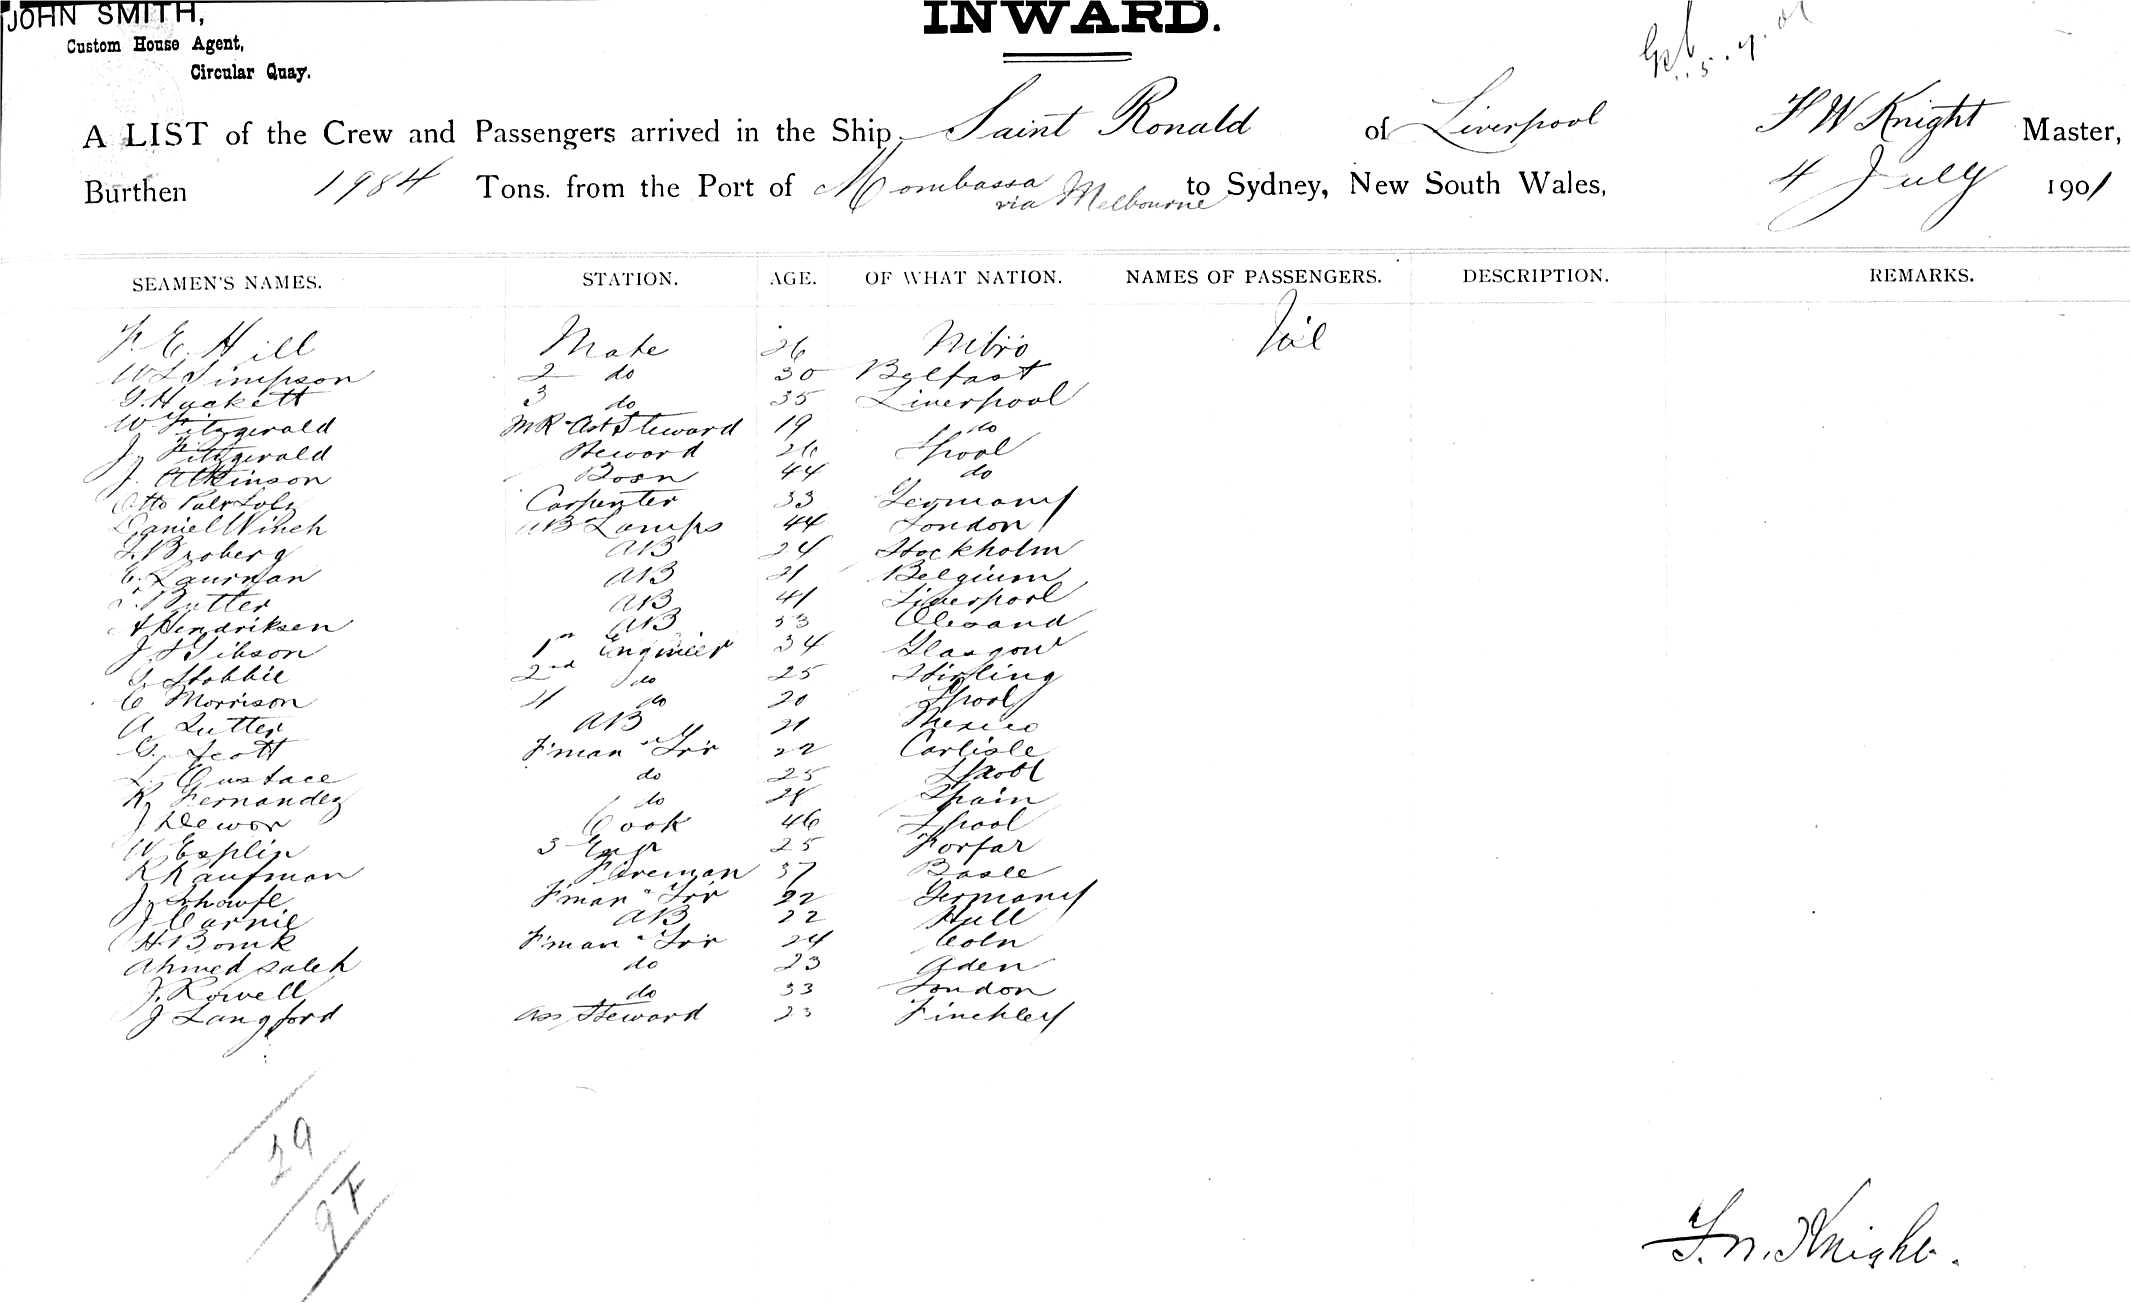 JOHN SMITH,
Custom House Agent,
Circular Quay.
INWARD.
A LIST of the Crew and Passengers arrived in the Ship Saint Ronald of Liverpool F W Knight Master,
Burthen 1984 Tons. from the Port of Mombassa via Melbourne to Sydney, New South Wales, 4 July 1901
SEAMEN'S NAMES. STATION. AGE. OF WHAT NATION. NAMES OF PASSENGERS. DESCRIPTION. REMARKS.
F. E. Hill Mate 26 Nil
W L Simpson 2 do 30 Belfast
G. Hackett 3 do 35 Liverpool
W Fitzgerald M R Ast Steward 19 do
J Fitzgerald Steward 26 Lpool
J. Atkinson Bosn 44 do
Otto Carpenter 33 Germany
Daniel Winch AB Lamps 44 London
Broberg AB 24 Stockholm
E. Laurman AB 21 Belgium
Butter AB 41 Liverpool
A Hendriksen AB 53 Olesand
J. Gibson 1st Engineer 34 Glasgow
Stobbie 2nd do 25 Stirling
C Morrison 4 do 20 Lpool
A Lutter AB 21 Mexico
G. Scott F'man & Trr 22 Carlisle
L. Eustace do 25 Lpool
R Fernandez do Spain
J Dewar Cook 46 Lpool
W Esplin 3 Engr 25 Forfar
K Kaufman Fireman 37 Basle
J F'man & Trr 22 Germany
J Carnie AB 22 Hull
H Bomk F'man & Trr 24 Coln
Ahmed Saleh do 23 Aden
J. Rowell do 33 London
J Langford Ass Steward 23 Finchley
29
F. W. Knight.